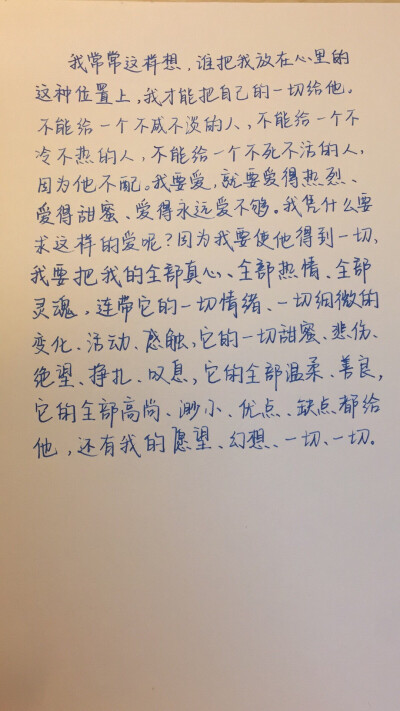 我常常这样想，谁把我放在心里的
这种位置上，我才能把自己的一切给他。
不能给一个不咸不淡的人，不能给一个不
冷不热的人，不能给一个不死不活的人，
因为他不配。我要爱，就要爱得热烈、
爱得甜蜜、爱得永远爱不够。我凭什么要
求这样的爱呢？因为我要使他得到一切，
我要把我的全部真心、全部热情、全部
灵魂，连带它的一切情绪、一切细微的
变化、活动、感触，它的一切甜蜜、悲伤、
绝望、挣扎、叹息，它的全部温柔、善良，
它的全部高尚、渺小、优点、缺点都给
他，还有我的愿望、幻想、一切、一切。